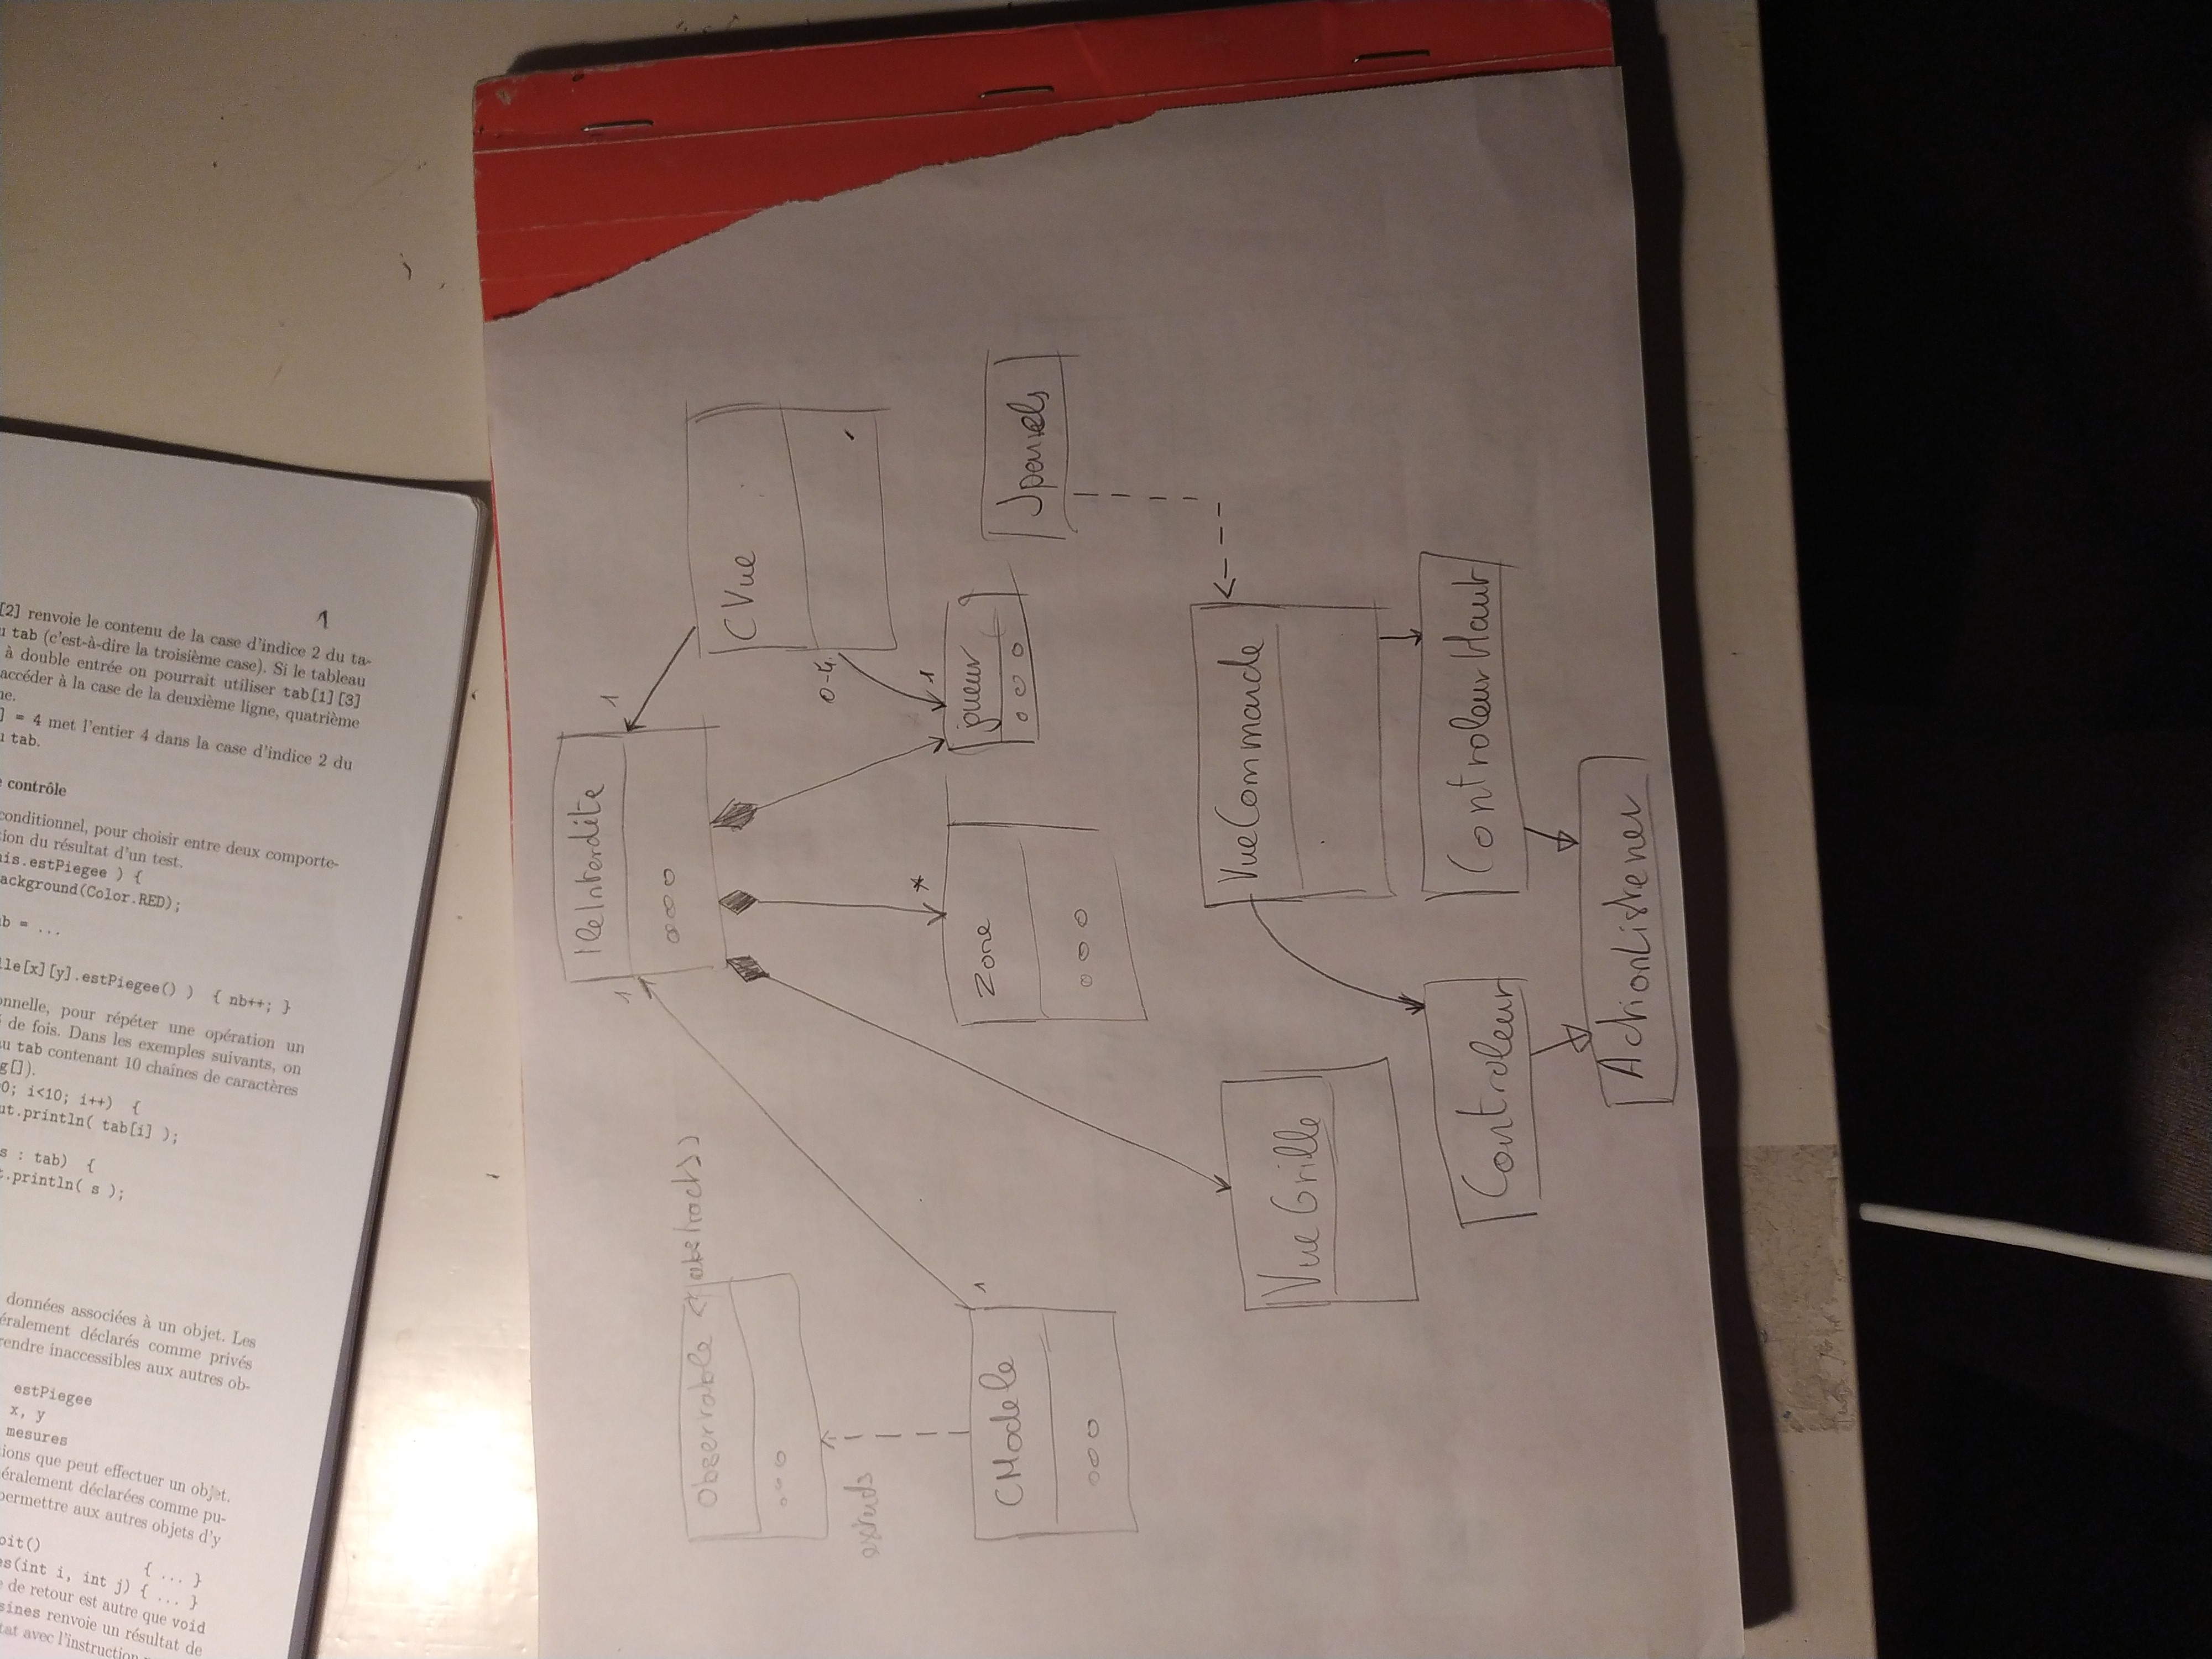 [2] renvoie le contenu de la case d'indice 2 du ta-
u tab (c'est-à-dire la troisième case). Si le tableau
à double entrée on pourrait utiliser tab[1][3]
accéder à la case de la deuxième ligne, quatrième
ne.
] = 4 met l'entier 4 dans la case d'indice 2 du
u tab.
e contrôle
conditionnel, pour choisir entre deux comporte-
ion du résultat d'un test.
is.estPiegee ) {
ackground(Color.RED);
b = ...
le[x][y].estPiegee() ) { nb++; }
onnelle, pour répéter une opération un
de fois. Dans les exemples suivants, on
u tab contenant 10 chaînes de caractères
g[]).
0; i<10; i++) {
ut.println( tab[i] );
s : tab) {
t.println( s );
1
données associées à un objet. Les
éralement déclarés comme privés
rendre inaccessibles aux autres ob-
estPiegee
x, y
mesures
ions que peut effectuer un objet.
éralement déclarées comme pu-
permettre aux autres objets d'y
oit()
es(int i, int j) { ... }
e de retour est autre que void
sines renvoie un résultat de
tat avec l'instruction
IleInterdite
1
1
Observable <<abstract>>
CVue
0-4
extends
*
1
CModele
1
Zone
joueur
Jpanels
VueGrille
VueCommande
Controleur
ControleurHaut
ActionListener